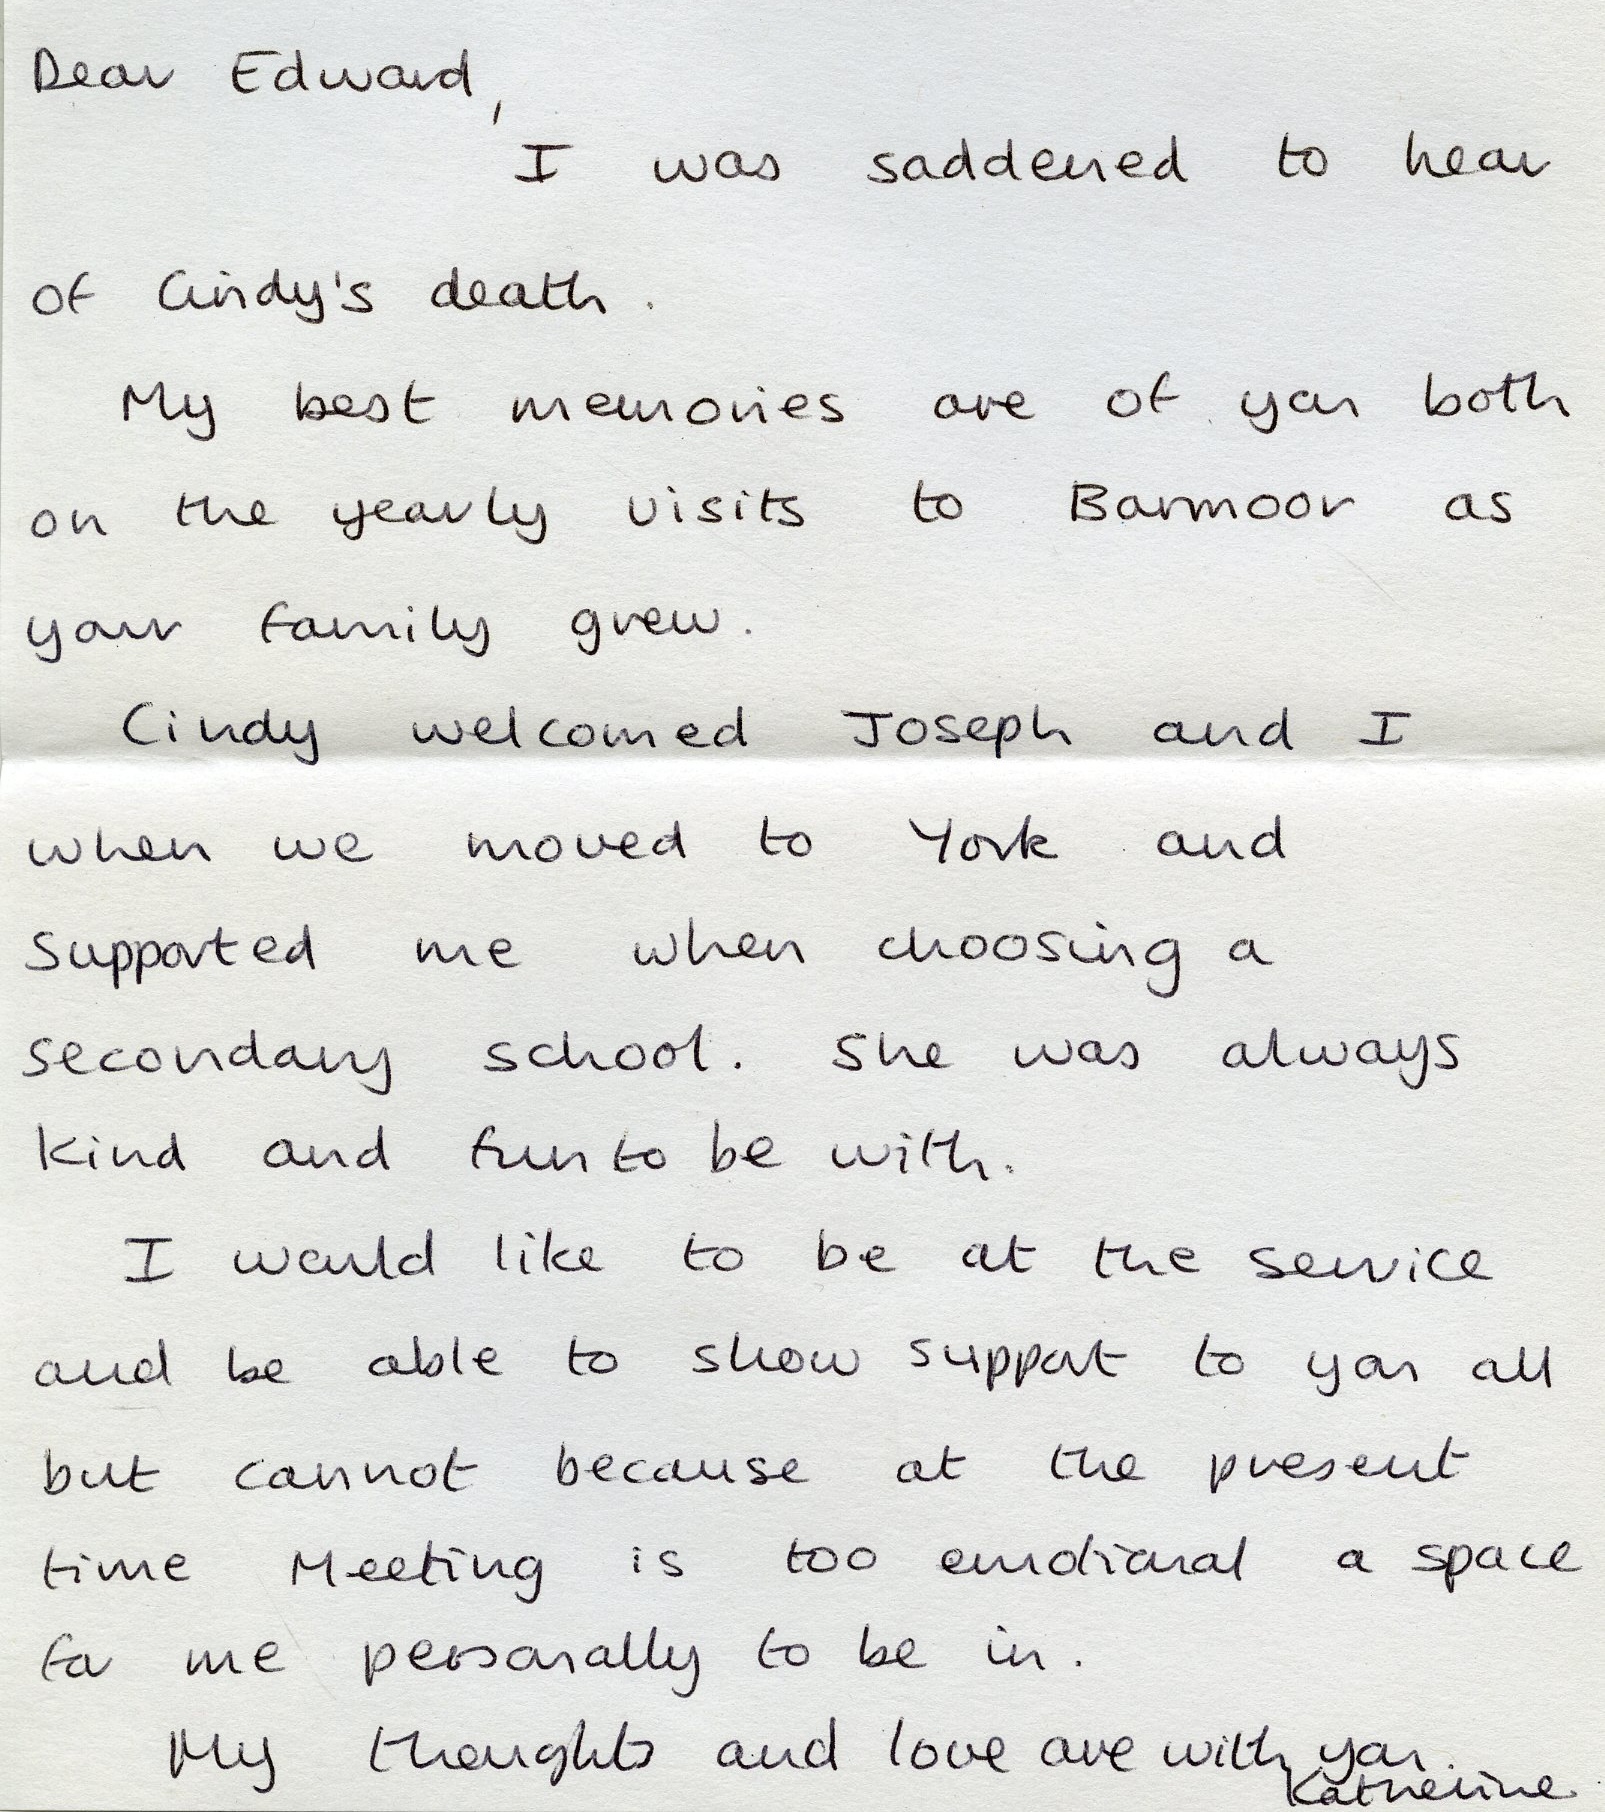 Dear Edward,
I was saddened to hear
of Cindy's death.
My best memories are of you both
on the yearly visits to Barmoor as
your family grew.
Cindy welcomed Joseph and I
when we moved to York and
supported me when choosing a
secondary school. She was always
kind and fun to be with.
I would like to be at the service
and be able to show support to you all
but cannot because at the present
time Meeting is too emotional a space
for me personally to be in.
My thoughts and love are with you.
Katherine